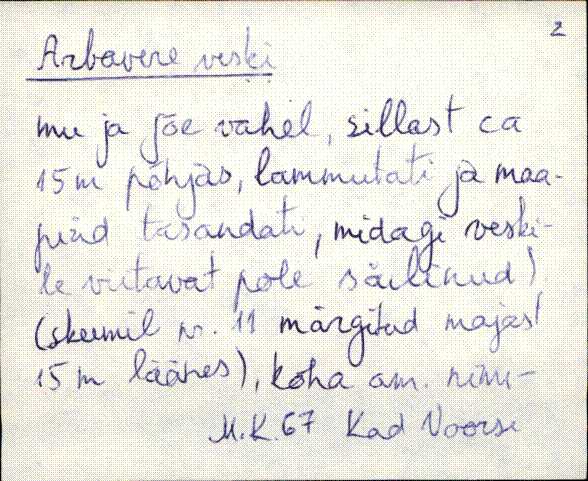 2
Arbavere veski
mu ja jõe vahel, sillast ca
15 m põhjas, lammutati ja maa-
pind tasandati, midagi veski-
le viitavat pole säilinud)
(skeemil nr. 11 märgitud majast
15 m läänes), koha am. nimi-
M.K. 67 Kad Voorse